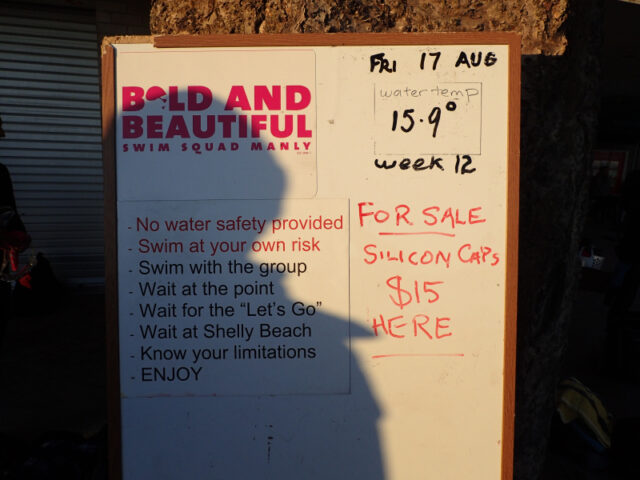 BOLD AND
BEAUTIFUL
SWIM SQUAD MANLY
FRI 17 AUG
water temp
15.9°
week 12
- No water safety provided
- Swim at your own risk
- Swim with the group
- Wait at the point
- Wait for the “Let's Go”
- Wait at Shelly Beach
- Know your limitations
- ENJOY
FOR SALE
SILICON CAPS
$15
HERE